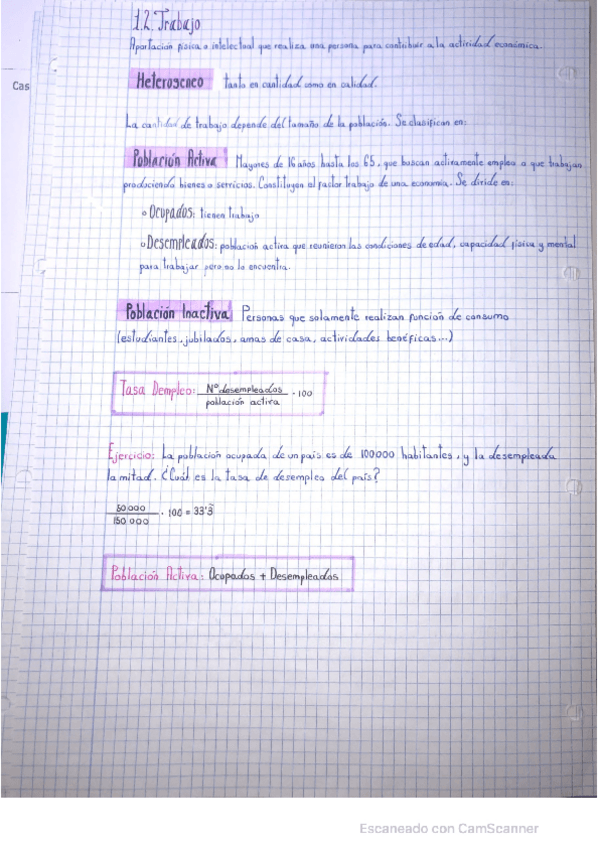 1.2. Trabajo
Aportación física o intelectual que realiza una persona para contribuir a la actividad económica.
Heterogeneo tanto en cantidad como en calidad.
Cas
La cantidad de trabajo depende del tamaño de la población. Se clasifican en:
Población Activa: Mayores de 16 años hasta los 65, que buscan activamente empleo o que trabajan
produciendo bienes o servicios. Constituyen el factor trabajo de una economía. Se divide en:
o Ocupados: tienen trabajo
o Desempleados: población activa que reunieron las condiciones de edad, capacidad física y mental
para trabajar pero no lo encuentra.
Población Inactiva Personas que solamente realizan función de consumo
(estudiantes, jubilados, amas de casa, actividades benéficas...)
Tasa Dempleo: Nº desempleados / población activa · 100
Ejercicio: La población ocupada de un país es de 100000 habitantes, y la desempleada
la mitad. ¿Cuál es la tasa de desempleo del país?
50000 / 150000 · 100 = 33'3
Población Activa: Ocupados + Desempleados
Escaneado con CamScanner